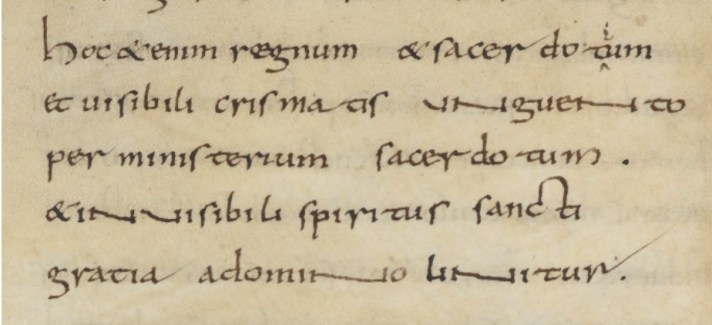 hoc & enim regnum & sacerdotium
et uisibili crismatis unguento
per ministerium sacerdotum.
& inuisibili spiritus sancti
gratia adomino linitur.